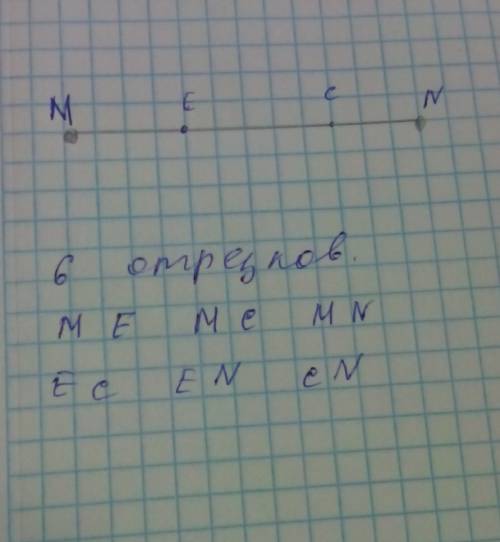 M E C N
6 отрезков.
M E M C M N
E C E N C N